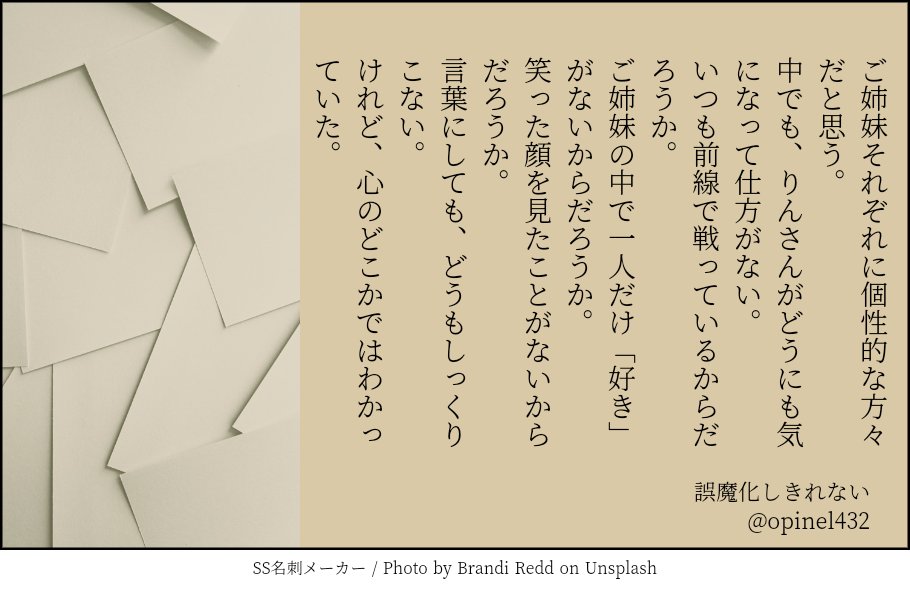 ご姉妹それぞれに個性的な方々
だと思う。
中でも、りんさんがどうにも気
になって仕方がない。
いつも前線で戦っているからだ
ろうか。
ご姉妹の中で一人だけ「好き」
がないからだろうか。
笑った顔を見たことがないから
だろうか。
言葉にしても、どうもしっくり
こない。
けれど、心のどこかではわかっ
ていた。
誤魔化しきれない
@opinel432
SS名刺メーカー / Photo by Brandi Redd on Unsplash